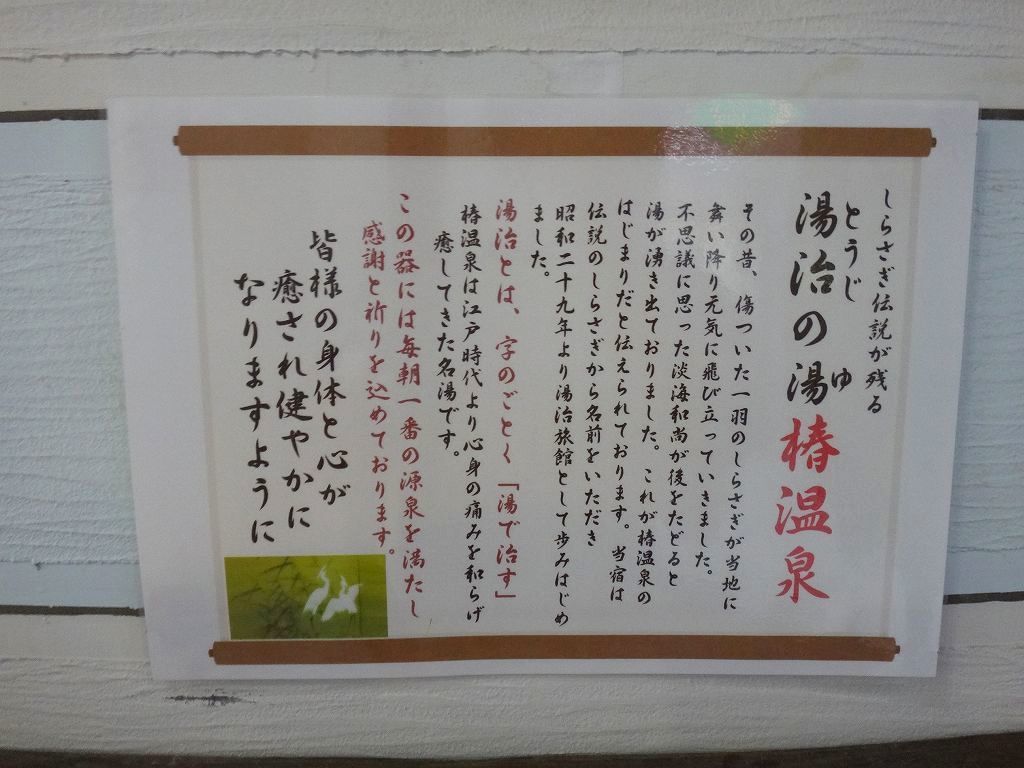 しらさぎ伝説が残る
とうじ　ゆ
湯治の湯椿温泉
その昔、傷ついた一羽のしらさぎが当地に
舞い降り元気に飛び立っていきました。
不思議に思った淡海和尚が後をたどると
湯が湧き出ておりました。これが椿温泉の
はじまりだと伝えられております。当宿は
伝説のしらさぎから名前をいただき
昭和二十九年より湯治旅館として歩みはじめ
ました。
湯治とは、字のごとく「湯で治す」
椿温泉は江戸時代より心身の痛みを和らげ
癒してきた名湯です。
この器には毎朝一番の源泉を満たし
感謝と祈りを込めております。
皆様の身体と心が
癒され健やかに
なりますように